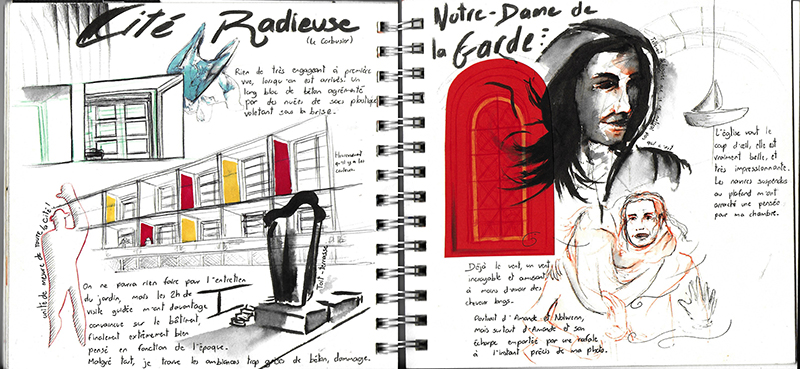 Cité Radieuse
(Le Corbusier)
Rien de très engageant à première
vue, lorsqu'on est arrivés! Un
long bloc de béton agrémenté
par des nuées de sacs plastiques
voletant sous la brise.
Heureusement
qu'il y a les
couleurs.
unité de mesure de toute la Cité!
Toit-terrasse
On ne pourra rien faire pour l'entretien
du jardin, mais les 2h de
visite guidée m'ont davantage
convaincue sur le bâtiment,
finalement extrêmement bien
pensé en fonction de l'époque.
Malgré tout, je trouve les ambiances trop grises de béton, dommage.
Notre-Dame de
la Garde:
L'église vaut le
coup d'œil, elle est
vraiment belle, et
très impressionnante.
Les navires suspendus
au plafond m'ont
arraché une pensée
pour ma chambre.
Déjà le vent, un vent
incroyable et amusant
à moins d'avoir des
cheveux longs.
Portrait d'Amande et Nolwenn,
Mais surtout d'Amande et son
écharpe emportée par une rafale
à l'instant précis de ma photo.